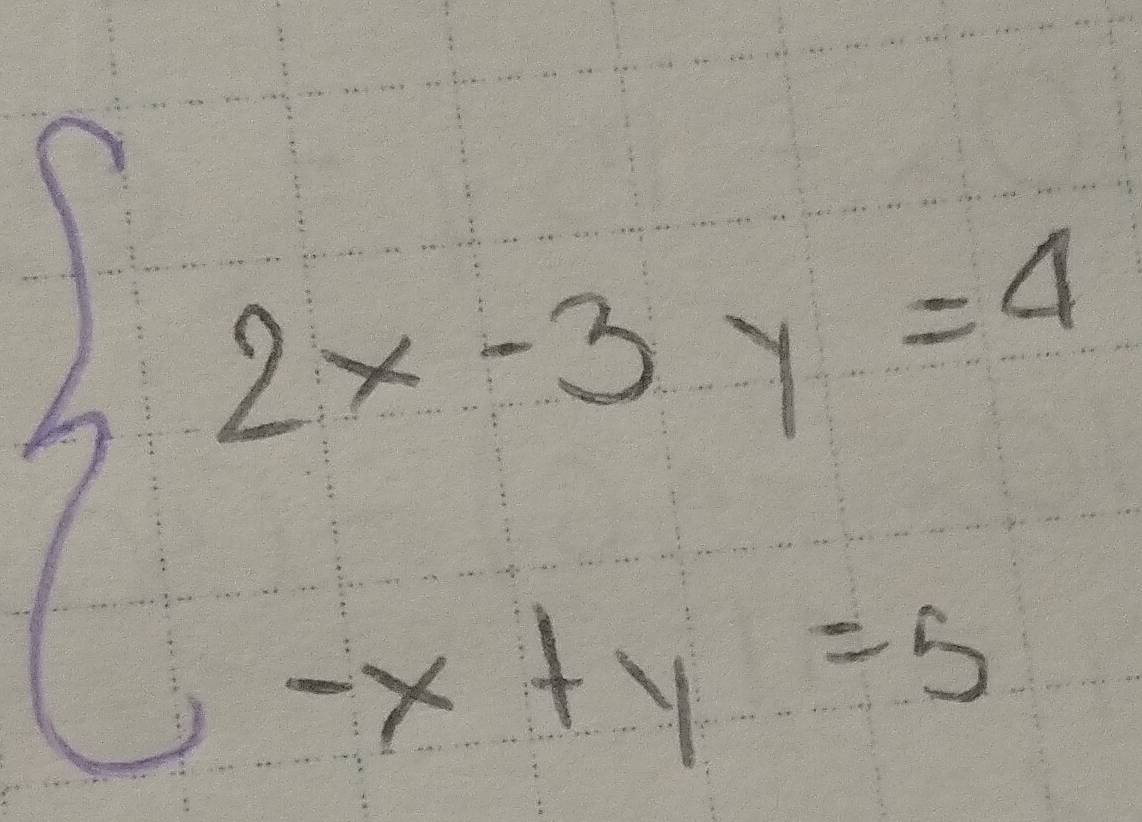 2x - 3y = 4
-x + y = 5